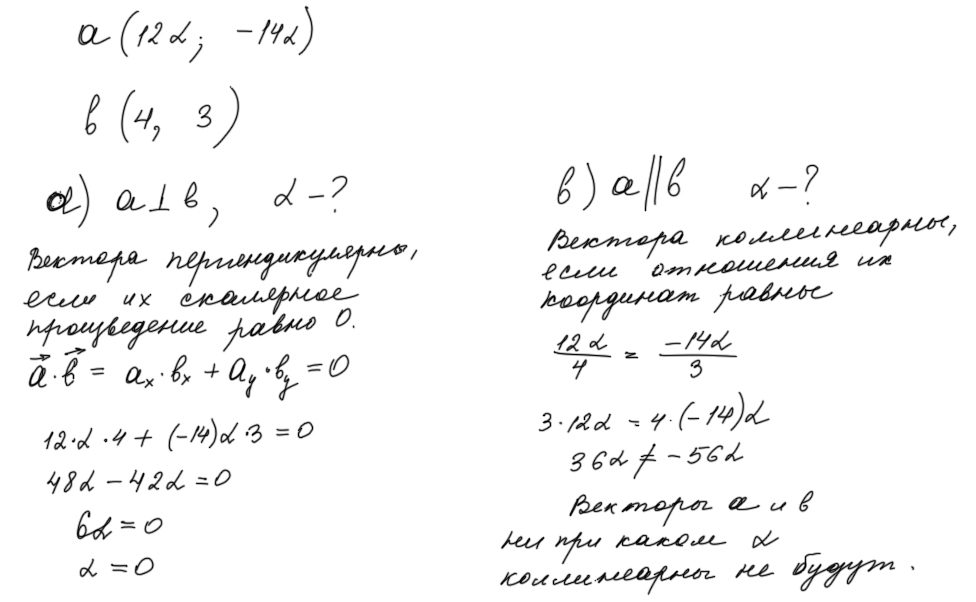 a (12α; -14α)
в (4, 3)
а) a ⊥ в, α - ?
Вектора перпендикулярны,
если их скалярное
произведение равно 0.
a⃗ · в⃗ = aₓ · вₓ + a_y · в_y = 0
12·α·4 + (-14)α·3 = 0
48α - 42α = 0
6α = 0
α = 0
в) a || в α - ?
Вектора коллинеарны,
если отношения их
координат равны
12α/4 = -14α/3
3·12α = 4·(-14)α
36α ≠ -56α
Векторы a и в
ни при каком α
коллинеарны не будут.